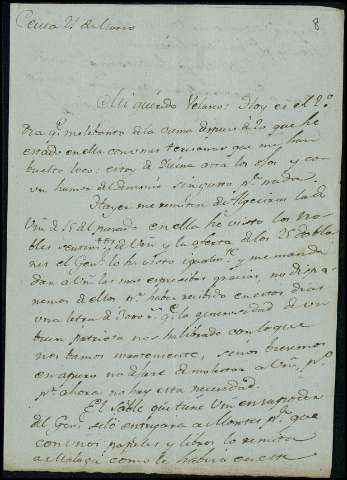 Ceuta 2 de Enero
8
Mi querido Velasco: Hoy es el 2º
dia q.e me lebanto de la cama despues de lo que he
estado en ella con unas tercianas que me han
buelto loco: estoy de Quina asta los ojos y con
un humor del demonio sin gusto p.a nada.
Hayer me remiten de Algeciras la de
Vm de 15 del pasado en ella he visto los no
bles sentim.tos de Vm y la oferta de los 25 doblo
nes el Gen.l lo ha visto igualm.te y me man
da a Vm las mas expresibas gracias, no dispo
nemos de ellos p.r haber recibido en estos dias
una letra de q.e la generosidad de un
buen patriota nos ha librado con lo que
nos bamos manteniendo, si nos bieremos
en apuro no dejaré de molestar a Vm, p.o
p.r ahora no hay esta necesidad.
El Sable que tiene Vm en su poder
del Gen.l se lo entregara a Montes p.a que
con unos papeles y libros lo remita
a Malaga como le habrá